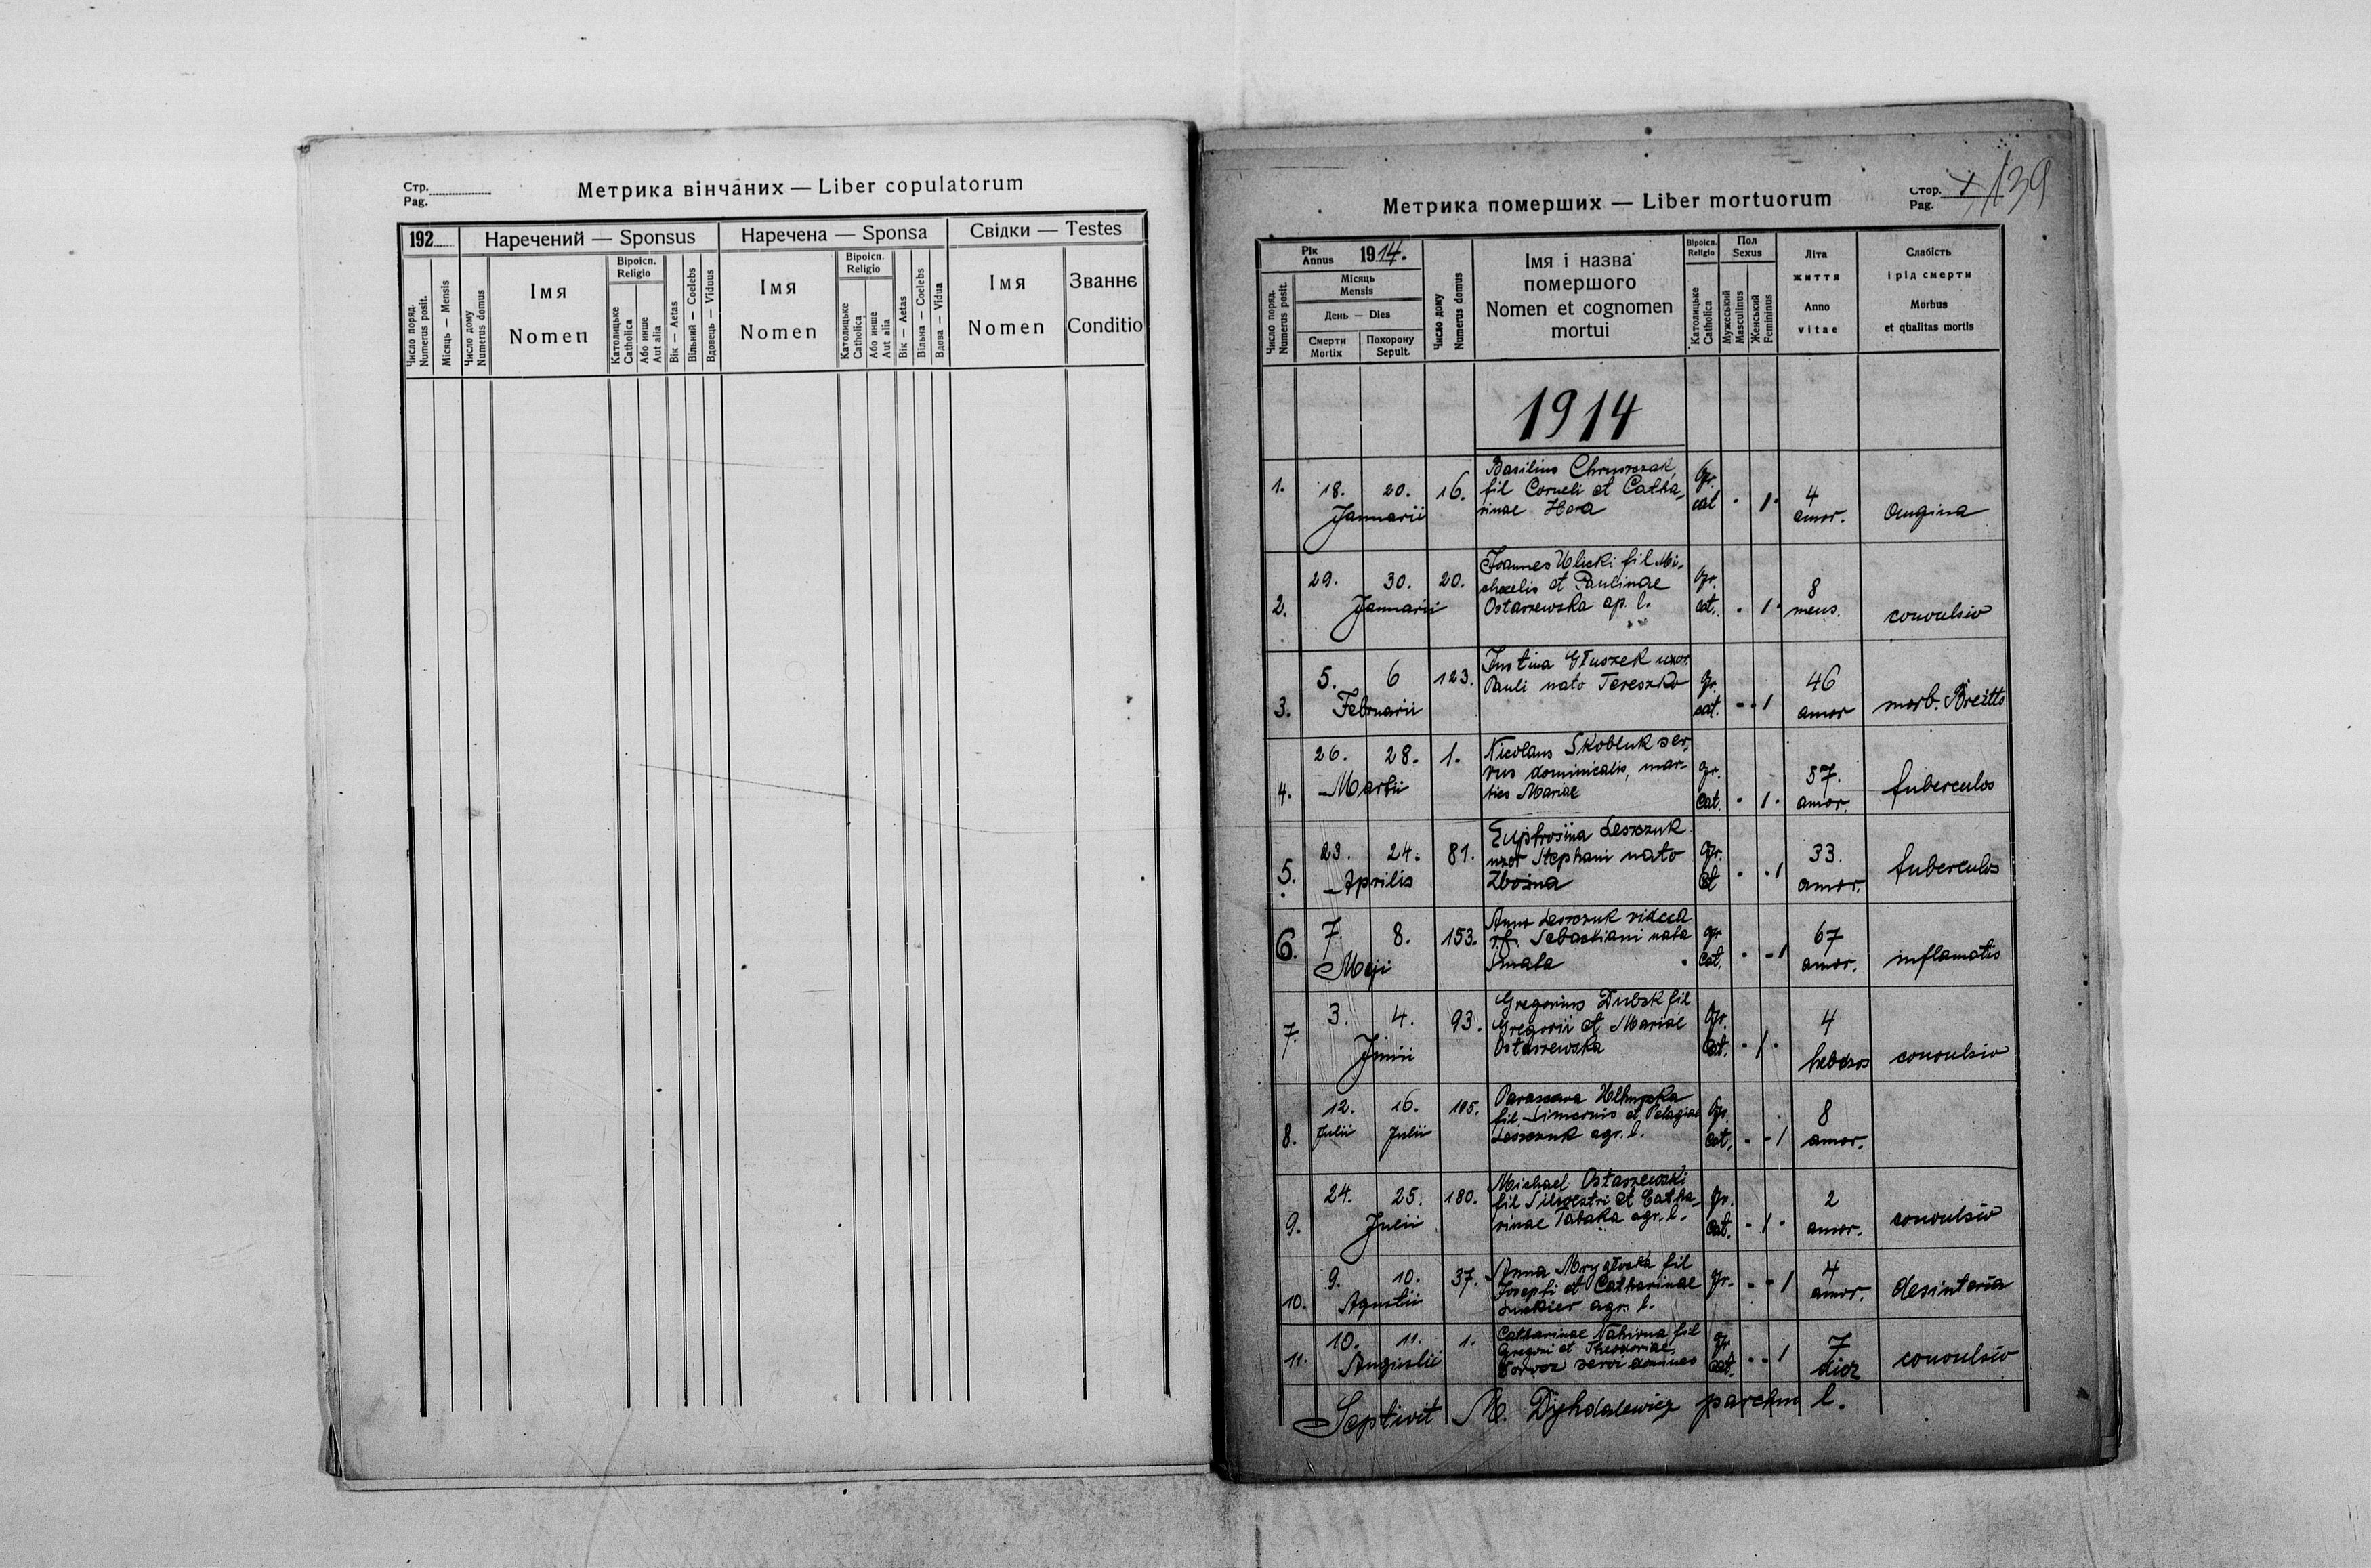 Стр.
Pag.
Метрика вінчаних — Liber copulatorum
192
Наречений — Sponsus
Наречена — Sponsa
Свідки — Testes
Число поряд.
Numerus posit.
Місяць — Mensis
Число дому
Numerus domus
Імя
Nomen
Віроісп.
Religio
Католицьке
Catholica
Або инше
Aut alia
Вік — Aetas
Вільний — Coelebs
Вдовець — Viduus
Імя
Nomen
Віроісп.
Religio
Католицьке
Catholica
Або инше
Aut alia
Вік — Aetas
Вільна — Coelebs
Вдова — Vidua
Імя
Nomen
Званнє
Conditio
Метрика померших — Liber mortuorum
Стор.
Pag.
139
Рік
Annus
1914.
Число поряд.
Numerus posit.
Місяць
Mensis
День — Dies
Смерти
Mortix
Похорону
Sepult.
Число дому
Numerus domus
Імя і назва
помершого
Nomen et cognomen
mortui
Віроісп.
Religio
Католицьке
Catholica
Пол
Sexus
Мужеський
Masculinus
Женський
Femininus
Літа
життя
Anno
vitae
Слабість
і рід смерти
Morbus
et qualitas mortis
1914
1. 18. 20. Januarii 16.
Basilius Chruszczak,
fil Corneli et Catha-
rinae
Gr.
cat
1
4
annor.
angina
2. 29. 30. Januarii 20.
Joannes Ulicki fil Mi-
chaelis et Paulinae
Ostaszewska ap. l.
Gr.
cat.
1
8
mens.
convulsio
3. 5. 6 Februarii 123.
Justina Głuszek uxor
Pauli nato Tereszko
Gr.
cat.
1
46
annor
morb.
4. 26. 28. Martii 1.
Nicolaus Skobluk ser-
vus dominicalis, mar-
Mariae
Gr.
Cat.
1
57.
annor.
tuberculos
5. 23. 24. Aprilis 81.
Euphrosina Leszczuk
uxor Stephani nato
Gr.
1
33.
annor.
tuberculos
6. 7. 8. Maji 153.
Anna Leszczuk
Sebastiani nata
Smala
gr
Cat.
1
67
annor.
inflamatio
7. 3. 4. Junii 93.
Gregorius Dubek fil
Gregorii et Mariae
Ostaszewska
Gr.
Cat.
1
4
convulsio
8. 12. Julii 16. Julii 105.
Parasceva
fil Simeonis et Pelagiae
Leszczuk agr. l.
Gr.
Cat.
1
8
annor.
9. 24. 25. Julii 180.
Michael Ostaszewski
fil Silvestri et Catha-
rinae Tabaka agr. l.
Gr.
Cat.
1
2
annor.
convulsio
10. 9. 10. Agustii 37.
Anna Mrygłocka fil
Josephi et Catharinae
agr. l.
Gr.
1
4
annor.
desinteria
11. 10. 11. Augustii 1.
Catharinae Nahirna fil
Gregori et Theodoriae
servi
gr
cat.
1
7
convulsio
Septivit M. Dyhdalewicz l.